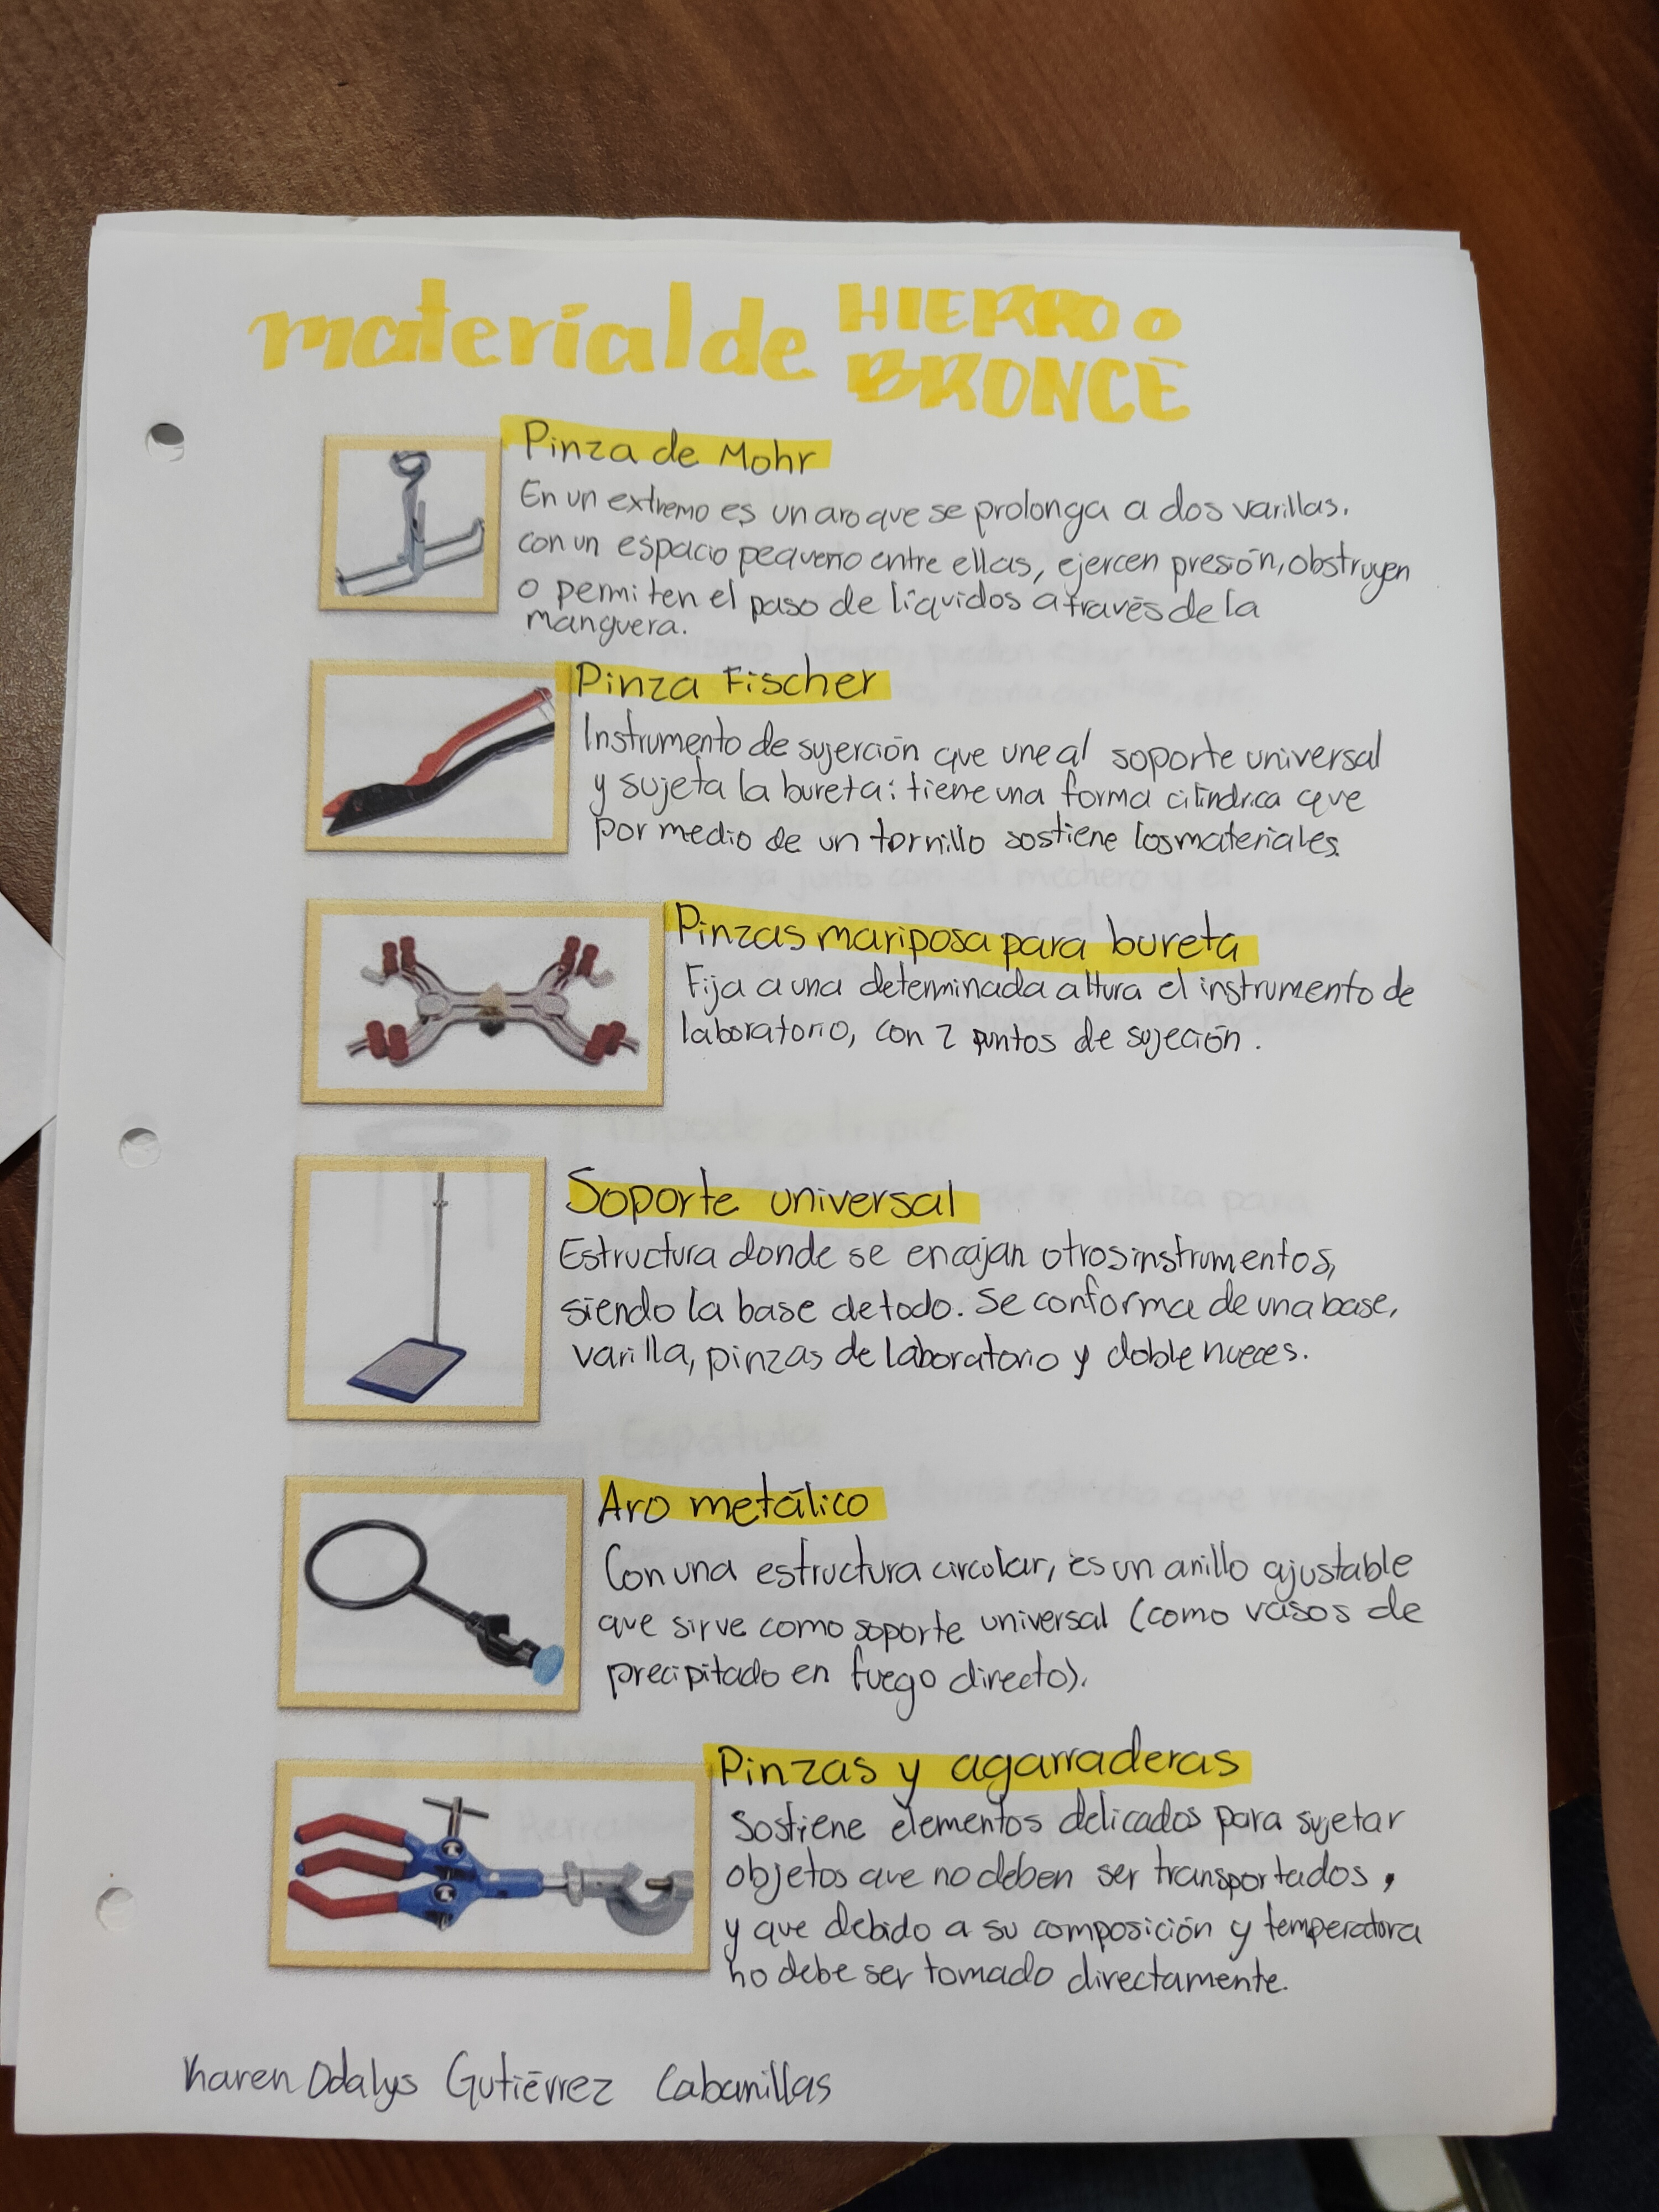 material de HIERRO o
BRONCE
Pinza de Mohr
En un extremo es un aro que se prolonga a dos varillas,
con un espacio pequeño entre ellas, ejercen presión, obstruyen
o permiten el paso de líquidos a través de la
manguera.
Pinza Fischer
Instrumento de sujerción que une al soporte universal
y sujeta la bureta: tiene una forma cilíndrica que
por medio de un tornillo sostiene los materiales.
Pinzas mariposa para bureta
Fija a una determinada altura el instrumento de
laboratorio, con 2 puntos de sujeción.
Soporte universal
Estructura donde se encajan otros instrumentos,
siendo la base de todo. Se conforma de una base,
varilla, pinzas de laboratorio y doble nueces.
Aro metálico
Con una estructura circular, es un anillo ajustable
que sirve como soporte universal (como vasos de
precipitado en fuego directo).
Pinzas y agarraderas
Sostiene elementos delicados para sujetar
objetos que no deben ser transportados,
y que debido a su composición y temperatura
no debe ser tomado directamente.
Karen Odalys Gutiérrez Cabanillas